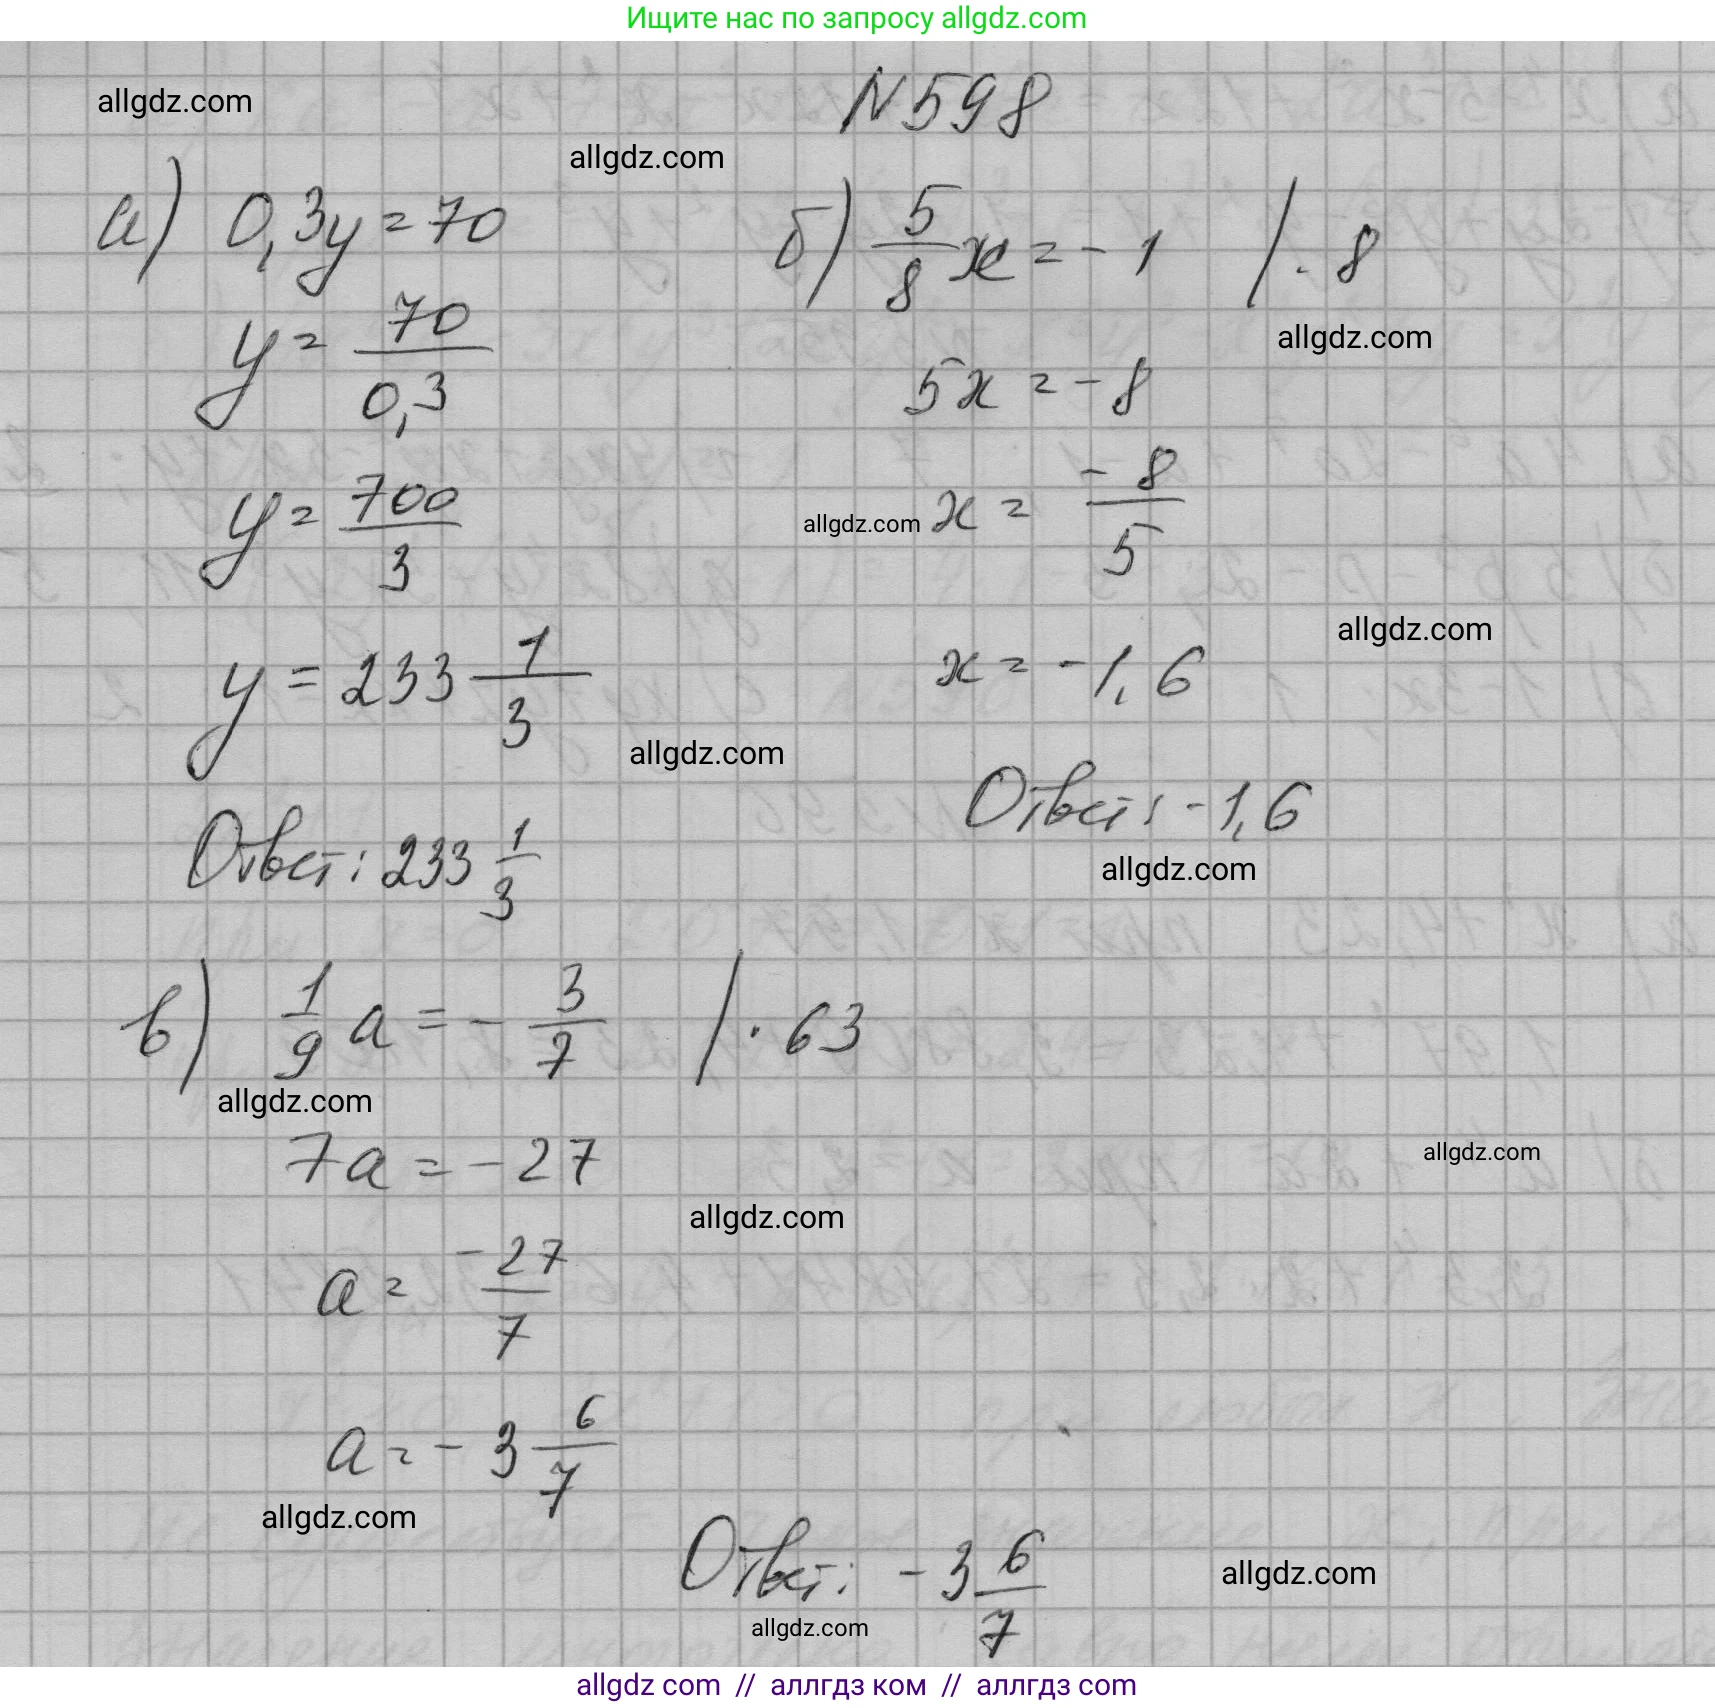 Ищите нас по запросу allgdz.com
N 598
allgdz.com
allgdz.com
а) 0,3y = 70
y = 70/0,3
y = 700/3
y = 233 1/3
allgdz.com
Ответ: 233 1/3
б) 5/8 x = - 1 | · 8
allgdz.com
5x = - 8
x = -8/5
allgdz.com
allgdz.com
x = - 1,6
Ответ: - 1,6
allgdz.com
в) 1/9 a = - 3/7 | · 63
allgdz.com
7a = - 27
allgdz.com
allgdz.com
a = -27/7
a = - 3 6/7
allgdz.com
Ответ: - 3 6/7
allgdz.com
allgdz.com
allgdz com // аллгдз ком // аллгдз com